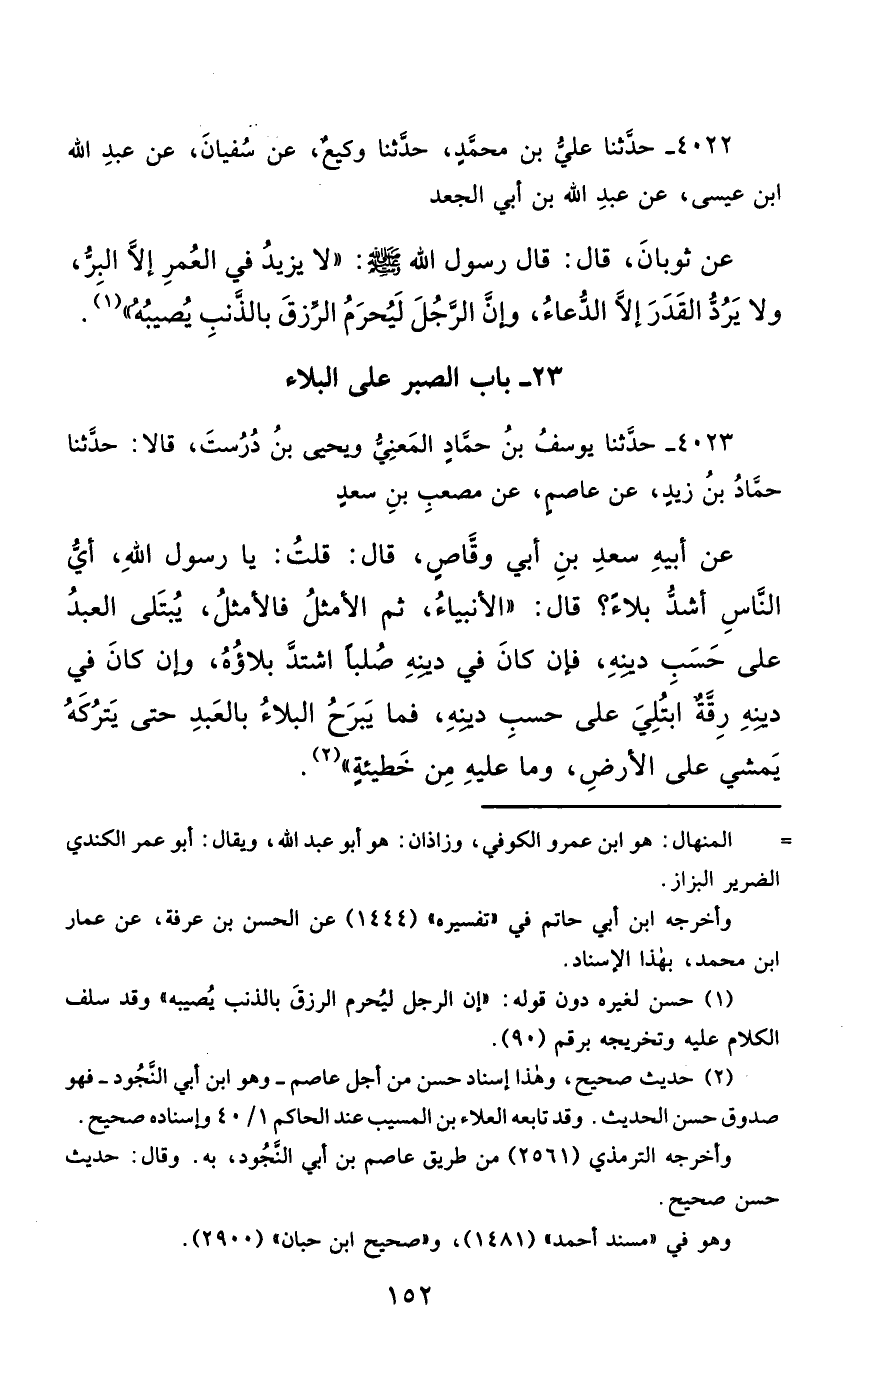 ٤٠٢٢ـ حدَّثنا عليُّ بن محمَّدٍ، حدَّثنا وكيعٌ، عن سُفيانَ، عن عبدِ الله
ابن عيسى، عن عبدِ الله بن أبي الجعد
عن ثوبانَ، قال: قال رسول الله ﷺ: «لا يزيدُ في العُمرِ إلاَّ البِرُّ،
ولا يَرُدُّ القَدَرَ إلاَّ الدُّعاءُ، وإنَّ الرَّجُلَ لَيُحرَمُ الرِّزقَ بالذَّنبِ يُصيبُهُ»(١).
٢٣ـ باب الصبر على البلاء
٤٠٢٣ـ حدَّثنا يوسفُ بنُ حمَّادٍ المَعنِيُّ ويحيى بنُ دُرُستَ، قالا: حدَّثنا
حمَّادُ بنُ زيدٍ، عن عاصمٍ، عن مصعبِ بنِ سعدٍ
عن أبيهِ سعدِ بنِ أبي وقَّاصٍ، قال: قلتُ: يا رسول اللهِ، أيُّ
النَّاسِ أشدُّ بلاءً؟ قال: «الأنبياءُ، ثم الأمثلُ فالأمثلُ، يُبتَلى العبدُ
على حَسَبِ دينِهِ، فإن كانَ في دينِهِ صُلباً اشتدَّ بلاؤُهُ، وإن كانَ في
دينِهِ رِقَّةٌ ابتُلِيَ على حسبِ دينِهِ، فما يَبرَحُ البلاءُ بالعَبدِ حتى يَترُكَهُ
يَمشي على الأرضِ، وما عليهِ مِن خَطيئةٍ»(٢).
= المنهال: هو ابن عمرو الكوفي، وزاذان: هو أبو عبد الله، ويقال: أبو عمر الكندي
الضرير البزاز.
وأخرجه ابن أبي حاتم في «تفسيره» (١٤٤٤) عن الحسن بن عرفة، عن عمار
ابن محمد، بهٰذا الإسناد.
(١) حسن لغيره دون قوله: «إن الرجل ليُحرم الرزقَ بالذنب يُصيبه» وقد سلف
الكلام عليه وتخريجه برقم (٩٠).
(٢) حديث صحيح، وهٰذا إسناد حسن من أجل عاصم ـ وهو ابن أبي النَّجُود ـ فهو
صدوق حسن الحديث. وقد تابعه العلاء بن المسيب عند الحاكم ١/ ٤٠ وإسناده صحيح.
وأخرجه الترمذي (٢٥٦١) من طريق عاصم بن أبي النَّجُود، به. وقال: حديث
حسن صحيح.
وهو في «مسند أحمد» (١٤٨١)، و«صحيح ابن حبان» (٢٩٠٠).
١٥٢